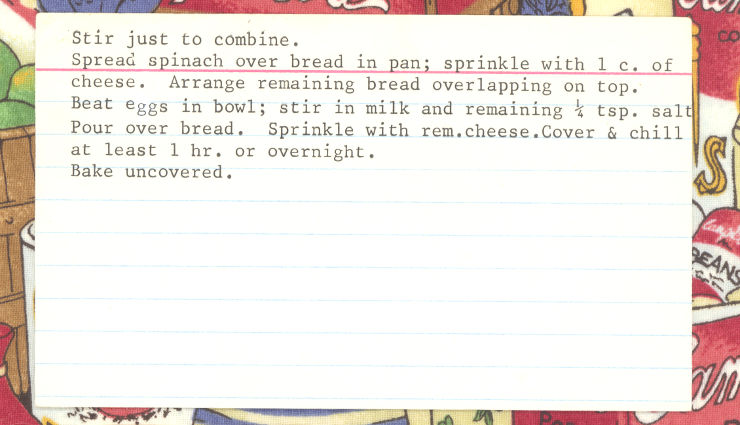 Stir just to combine.
Spread spinach over bread in pan; sprinkle with 1 c. of
cheese. Arrange remaining bread overlapping on top.
Beat eggs in bowl; stir in milk and remaining ¼ tsp. salt
Pour over bread. Sprinkle with rem.cheese.Cover & chill
at least 1 hr. or overnight.
Bake uncovered.
S
BEANS